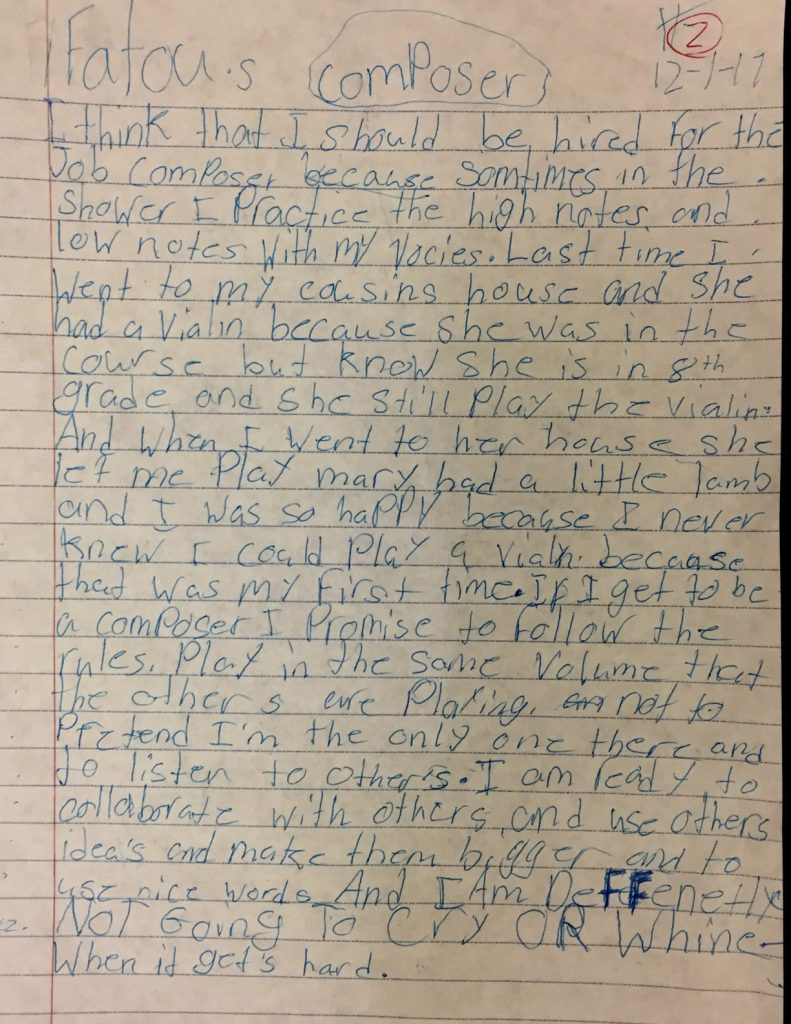 Fatou.s composer #2
12-1-17
I think that I should be hired For the
Job composer because somtimes in the
shower I Practice the high notes and
low notes With my Vocies. Last time I
Went to my cousins house and she
had a Vialin because she was in the
course but know she is in 8th
grade and she still Play the vialin.
And When I Went to her house she
let me Play mary had a little lamb
and I was so happy because I never
knew I could Play a vialn. because
that was my First time. IF I get to be
a comPoser I Promise to Follow the
rules. Play in the same Volume that
the other s are Playing, not to
Pretend I'm the only one there and
to listen to other's. I am ready to
collaborate with others, and use others
idea's and make them bigger and to
use nice words And I Am DeFFenetly
NOT Going To Cry OR Whine
When it get's hard.